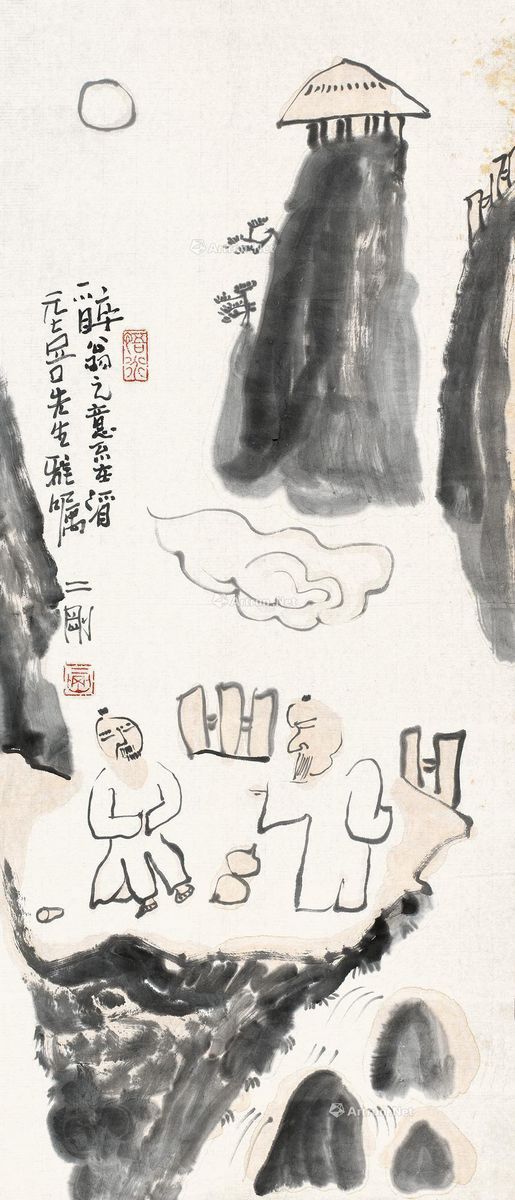 醉翁之意不在酒
元
先生雅嘱
二刚
Artron.Net
Artron.Net
Artron.Net